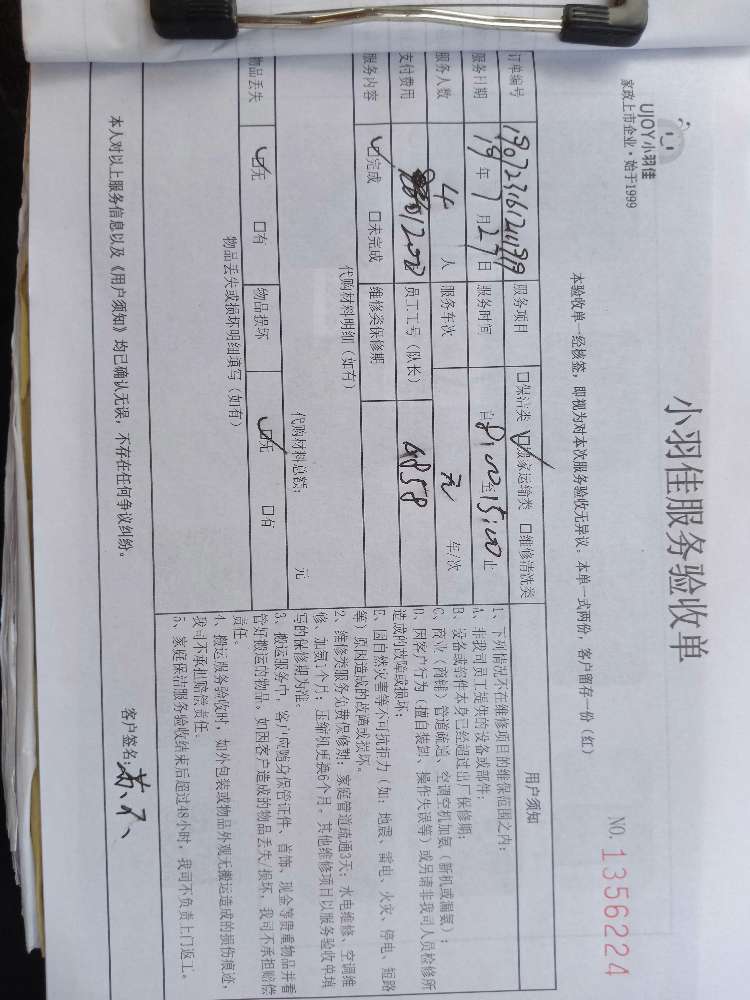 UJOY小羽佳
家政上市企业·始于1999
小羽佳服务验收单
NO. 1356224
本验收单一经核签，即视为对本次服务验收无异议。本单一式两份，客户留存一份（红）
订单编号 服务项目 □保洁类 ☑搬家运输类 □维修清洗类
服务日期 19年7月27日 服务时间 自8:00至15:00止
服务人数 4人 服务车次 车/次
支付费用 1200 员工工号（队长） 4858
服务内容 ☑完成 □未完成 维修类保修期
代购材料明细（如有）
代购材料总额： 元
物品丢失 ☑无 □有 物品损坏 ☑无 □有
物品丢失或损坏明细填写（如有）
用户须知
1、下列情况不在维修项目的维保范围之内：
A、非我司员工提供的设备或部件；
B、设备或部件本身已经超过出厂保修期；
C、商业（商铺）管道疏通、空调空机加氨（新机或漏氨）；
D、因客户行为（擅自装卸、操作失误等）或另请非我司人员检修所
造成的故障或损坏；
E、因自然灾害等不可抗拒力（如：地震、雷电、火灾、停电、短路
等）原因造成的故障或损坏。
2、维修类服务免费保修期：家庭管道疏通3天；水电维修、空调维
修、加氨1个月；压缩机更换6个月，其他维修项目以服务验收单填
写的保修期为准。
3、搬运服务中，客户应随身保管证件、首饰、现金等贵重物品并看
管好搬运的物品，如因客户造成的物品丢失/损坏，我司不承担赔偿
责任。
4、搬运服务验收时，如外包装或物品外观无搬运造成的损伤痕迹，
我司不承担赔偿责任。
5、家庭保洁服务验收结束后超过48小时，我司不负责上门返工。
本人对以上服务信息以及《用户须知》均已确认无误，不存在任何争议纠纷。
客户签名：